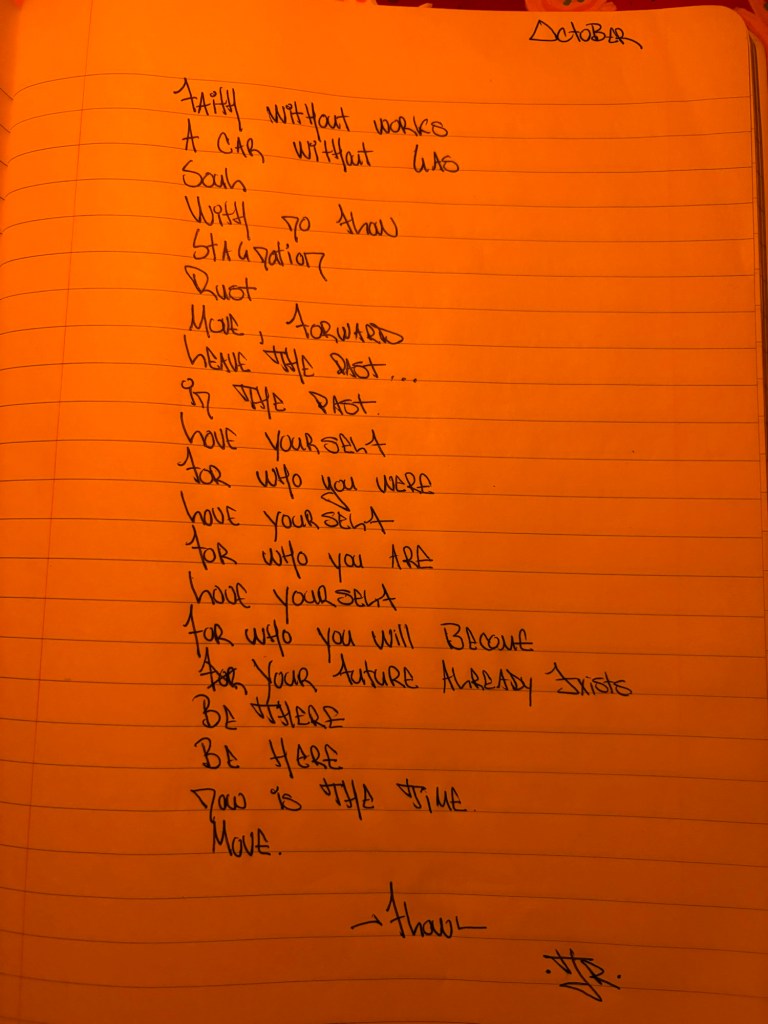 October
Faith without works
A car without gas
Soul
With no flow
Stagnation
Rust
Move, forward
Leave the past...
in the past.
Love yourself
for who you were
Love yourself
for who you are
Love yourself
for who you will become
For your future already exists
Be there
Be here
now is the time.
Move.
-flow-